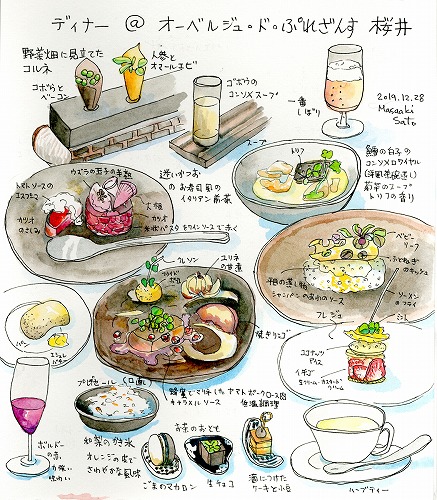 ディナー @ オーベルジュ・ド・ぷれざんす 桜井
野菜畑に見立てた
コルネ
人参と
オマールエビ
ゴボウと
ベーコン
ゴボウの
コンソメスープ
スープ
一番
しぼり
2019.12.28
Masaaki
Sato
トリフ
鱈の白子の
コンソメロワイヤル
(洋風茶碗蒸し)
トリフの香り
ウズラの玉子の半熟
トマトソースの
迷いかつお
のお寿司風の
イタリアン前菜
大根
カツオ
カツオ
のたたき
ベビー
リーフ
のキッシュ
ソーメン
のフライ
平目の蒸し物
シャンパンのあわのソース
クレソン
ユリネ
の甘煮
フライド
ポテト
焼きリンゴ
パン
バター
蜂蜜でマリネした ヤマトポークロース肉
キャラメルソース
低温調理
フレジェ
ココナッツ
アイス
イチゴ
生クリーム・カスタード
クリーム
プレデセール (口直し)
ボルドー
の赤
力強い
味わい
和梨のかき氷
オレンジの皮で
さわやかな風味
お茶のおとも
ごまマカロン
生チョコ
酒につけた
ケーキと小豆
ハーブティー